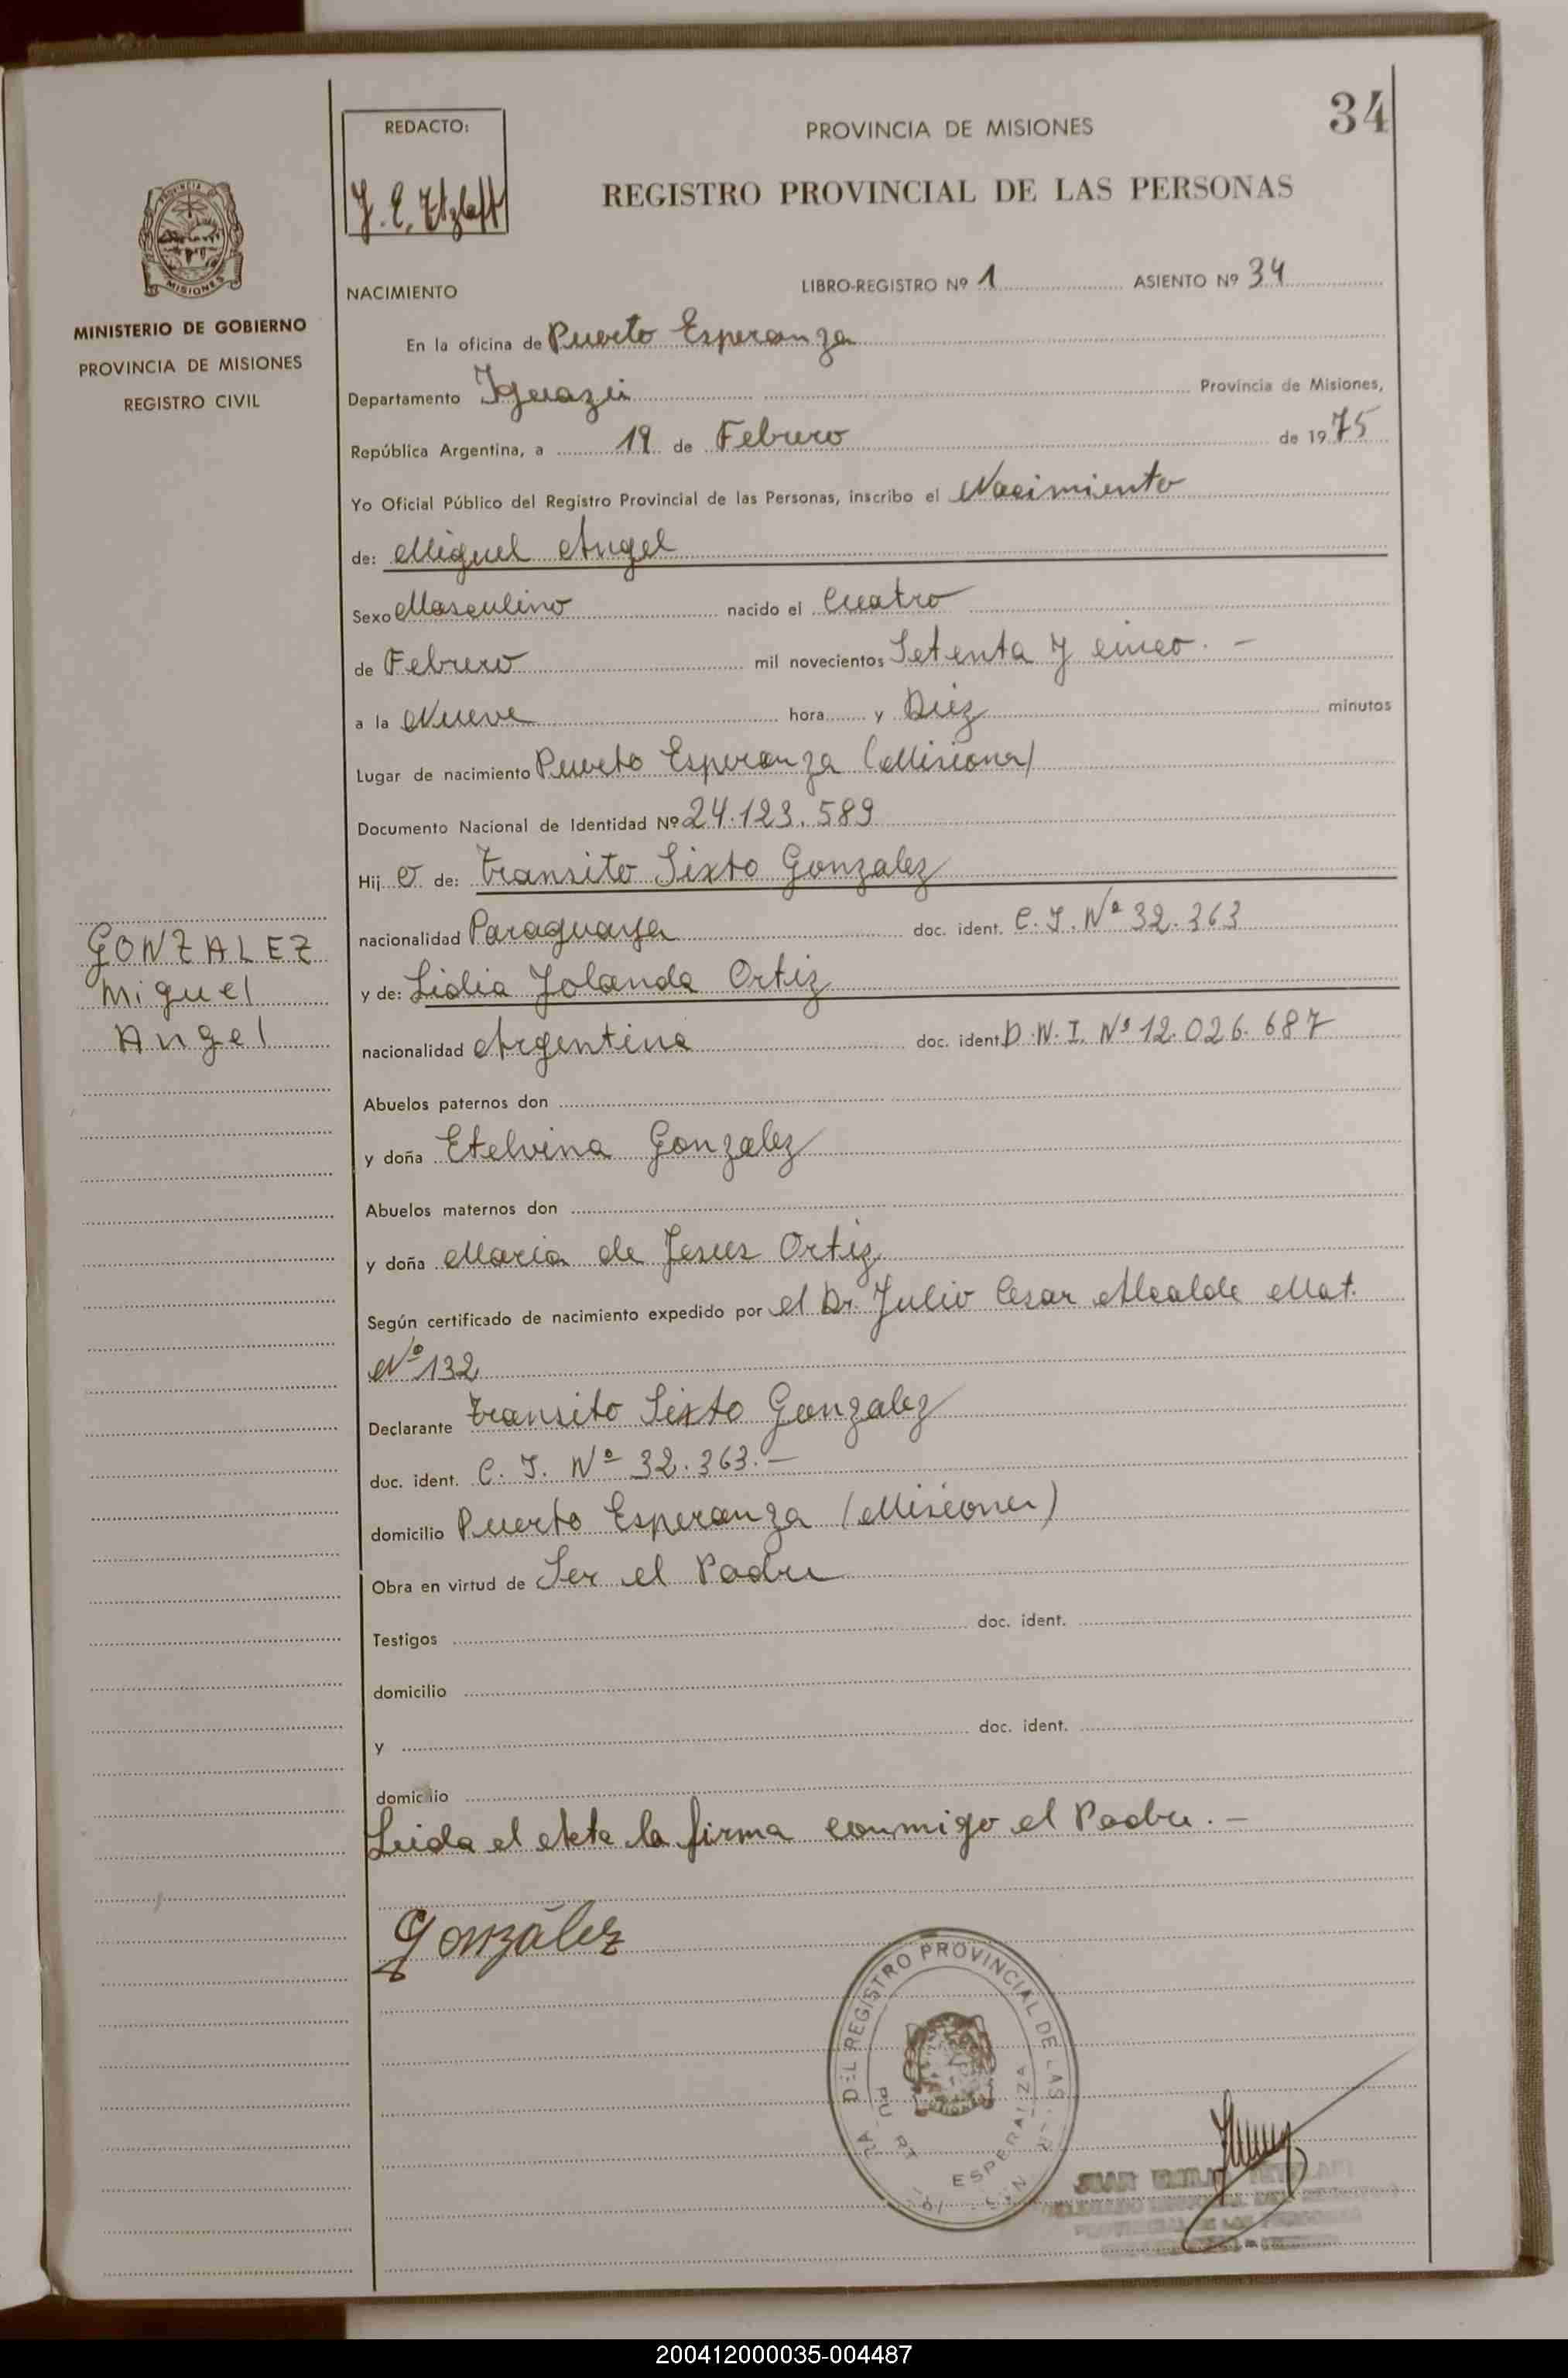 34
REDACTO:
J. E. Etzlaff
PROVINCIA DE MISIONES
REGISTRO PROVINCIAL DE LAS PERSONAS
MISIONES
MINISTERIO DE GOBIERNO
PROVINCIA DE MISIONES
REGISTRO CIVIL
NACIMIENTO LIBRO-REGISTRO Nº 1 ASIENTO Nº 34
En la oficina de Puerto Esperanza
Departamento Iguazú Provincia de Misiones,
República Argentina, a 19 de Febrero de 1975
Yo Oficial Público del Registro Provincial de las Personas, inscribo el Nacimiento
de: Miguel Angel
Sexo Masculino nacido el Cuatro
de Febrero mil novecientos Setenta y cinco.-
a la Nueve hora y Diez minutos
Lugar de nacimiento Puerto Esperanza (Misiones)
Documento Nacional de Identidad Nº 24.123.589
Hij o de: Transito Sixto Gonzalez
nacionalidad Paraguaya doc. ident. C. I. Nº 32.363
y de: Lidia Yolanda Ortiz
nacionalidad Argentina doc. ident. D.N.I. Nº 12.026.687
GONZALEZ
Miguel
Angel
Abuelos paternos don
y doña Etelvina Gonzalez
Abuelos maternos don
y doña Maria de Jesus Ortiz
Según certificado de nacimiento expedido por el Dr. Julio Cesar Alcalde Mat.
Nº 132
Declarante Transito Sixto Gonzalez
doc. ident. C. I. Nº 32.363.-
domicilio Puerto Esperanza (Misiones)
Obra en virtud de Ser el Padre
Testigos doc. ident.
domicilio
y doc. ident.
domicilio
Leida el Acta la firma conmigo el Padre.-
González
DEL REGISTRO PROVINCIAL DE LAS
ESPERANZA
JUAN EMILIO
200412000035-004487